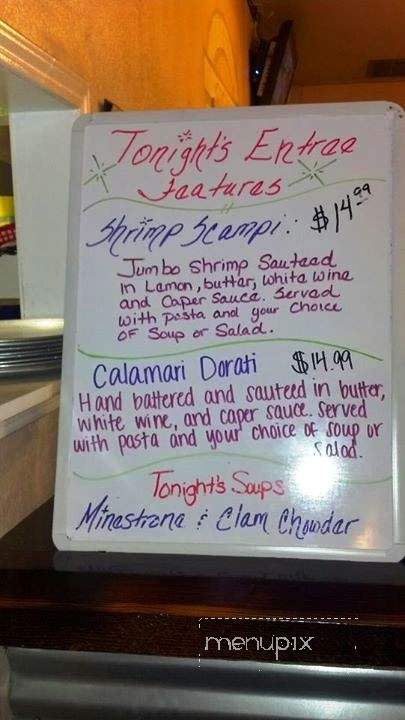 Tonight's Entree
Features
Shrimp Scampi: $14.99
Jumbo Shrimp Sauteed
in Lemon, butter, white wine
and Caper Sauce. Served
with Pasta and your Choice
of Soup or Salad.
Calamari Dorati $14.99
Hand battered and sauteed in butter,
white wine, and caper sauce. Served
with pasta and your choice of soup or
Salad.
Tonight's Soups
Minestrone & Clam Chowder
menupix